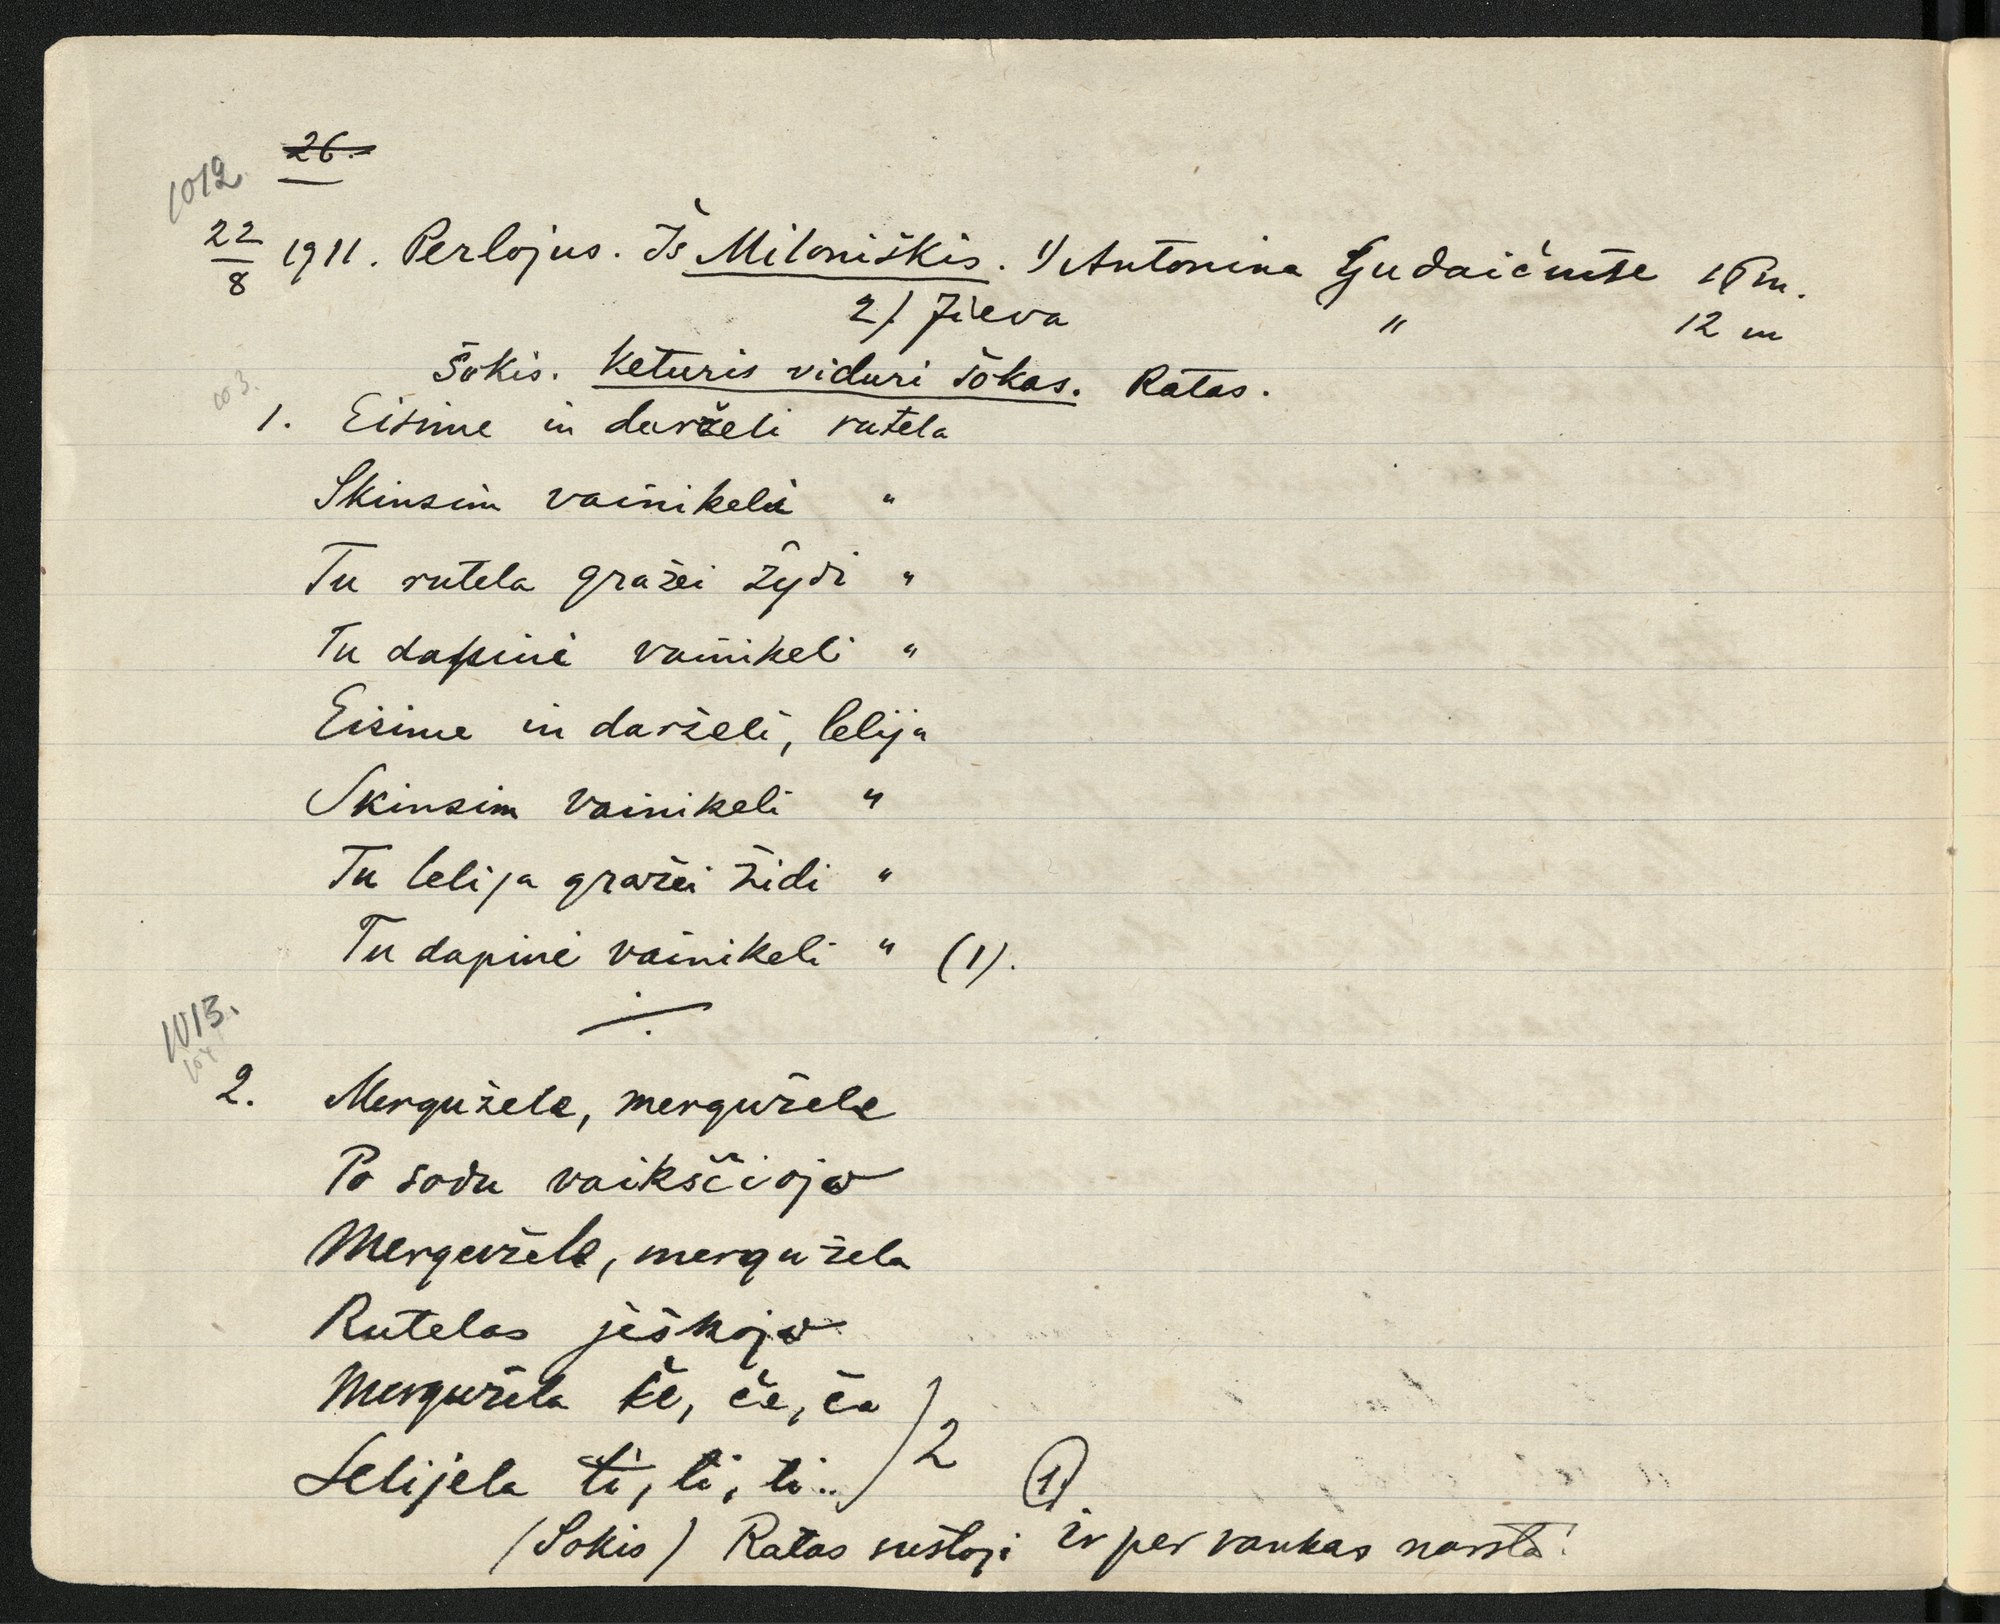 26.
1012
22/8 1911. Perlojus. Iš Miloniškis. 1) Antonina Gudaičiute 16 m.
2). Jieva " 12 m
Šokis. Keturis viduri šokas. Ratas.
103.
1. Eisime in darželi rutela
Skinsim vainikeli "
Tu rutela gražei žydi "
Tu dapine vainikeli "
Eisime in darželi, lelija
Skinsim vainikeli "
Tu lelija gražei židi "
Tu dapine vainikeli " (1).
1013.
104
2. Mergužele, mergužele
Po sodu vaikščiojo
Mergužele, mergužela
Rutelas ješkojo
Mergužela če, če, ča
Lelijela ti, ti, ti.. ) 2 (1)
(Šokis) Ratas sustoji ir per rankas narsta.